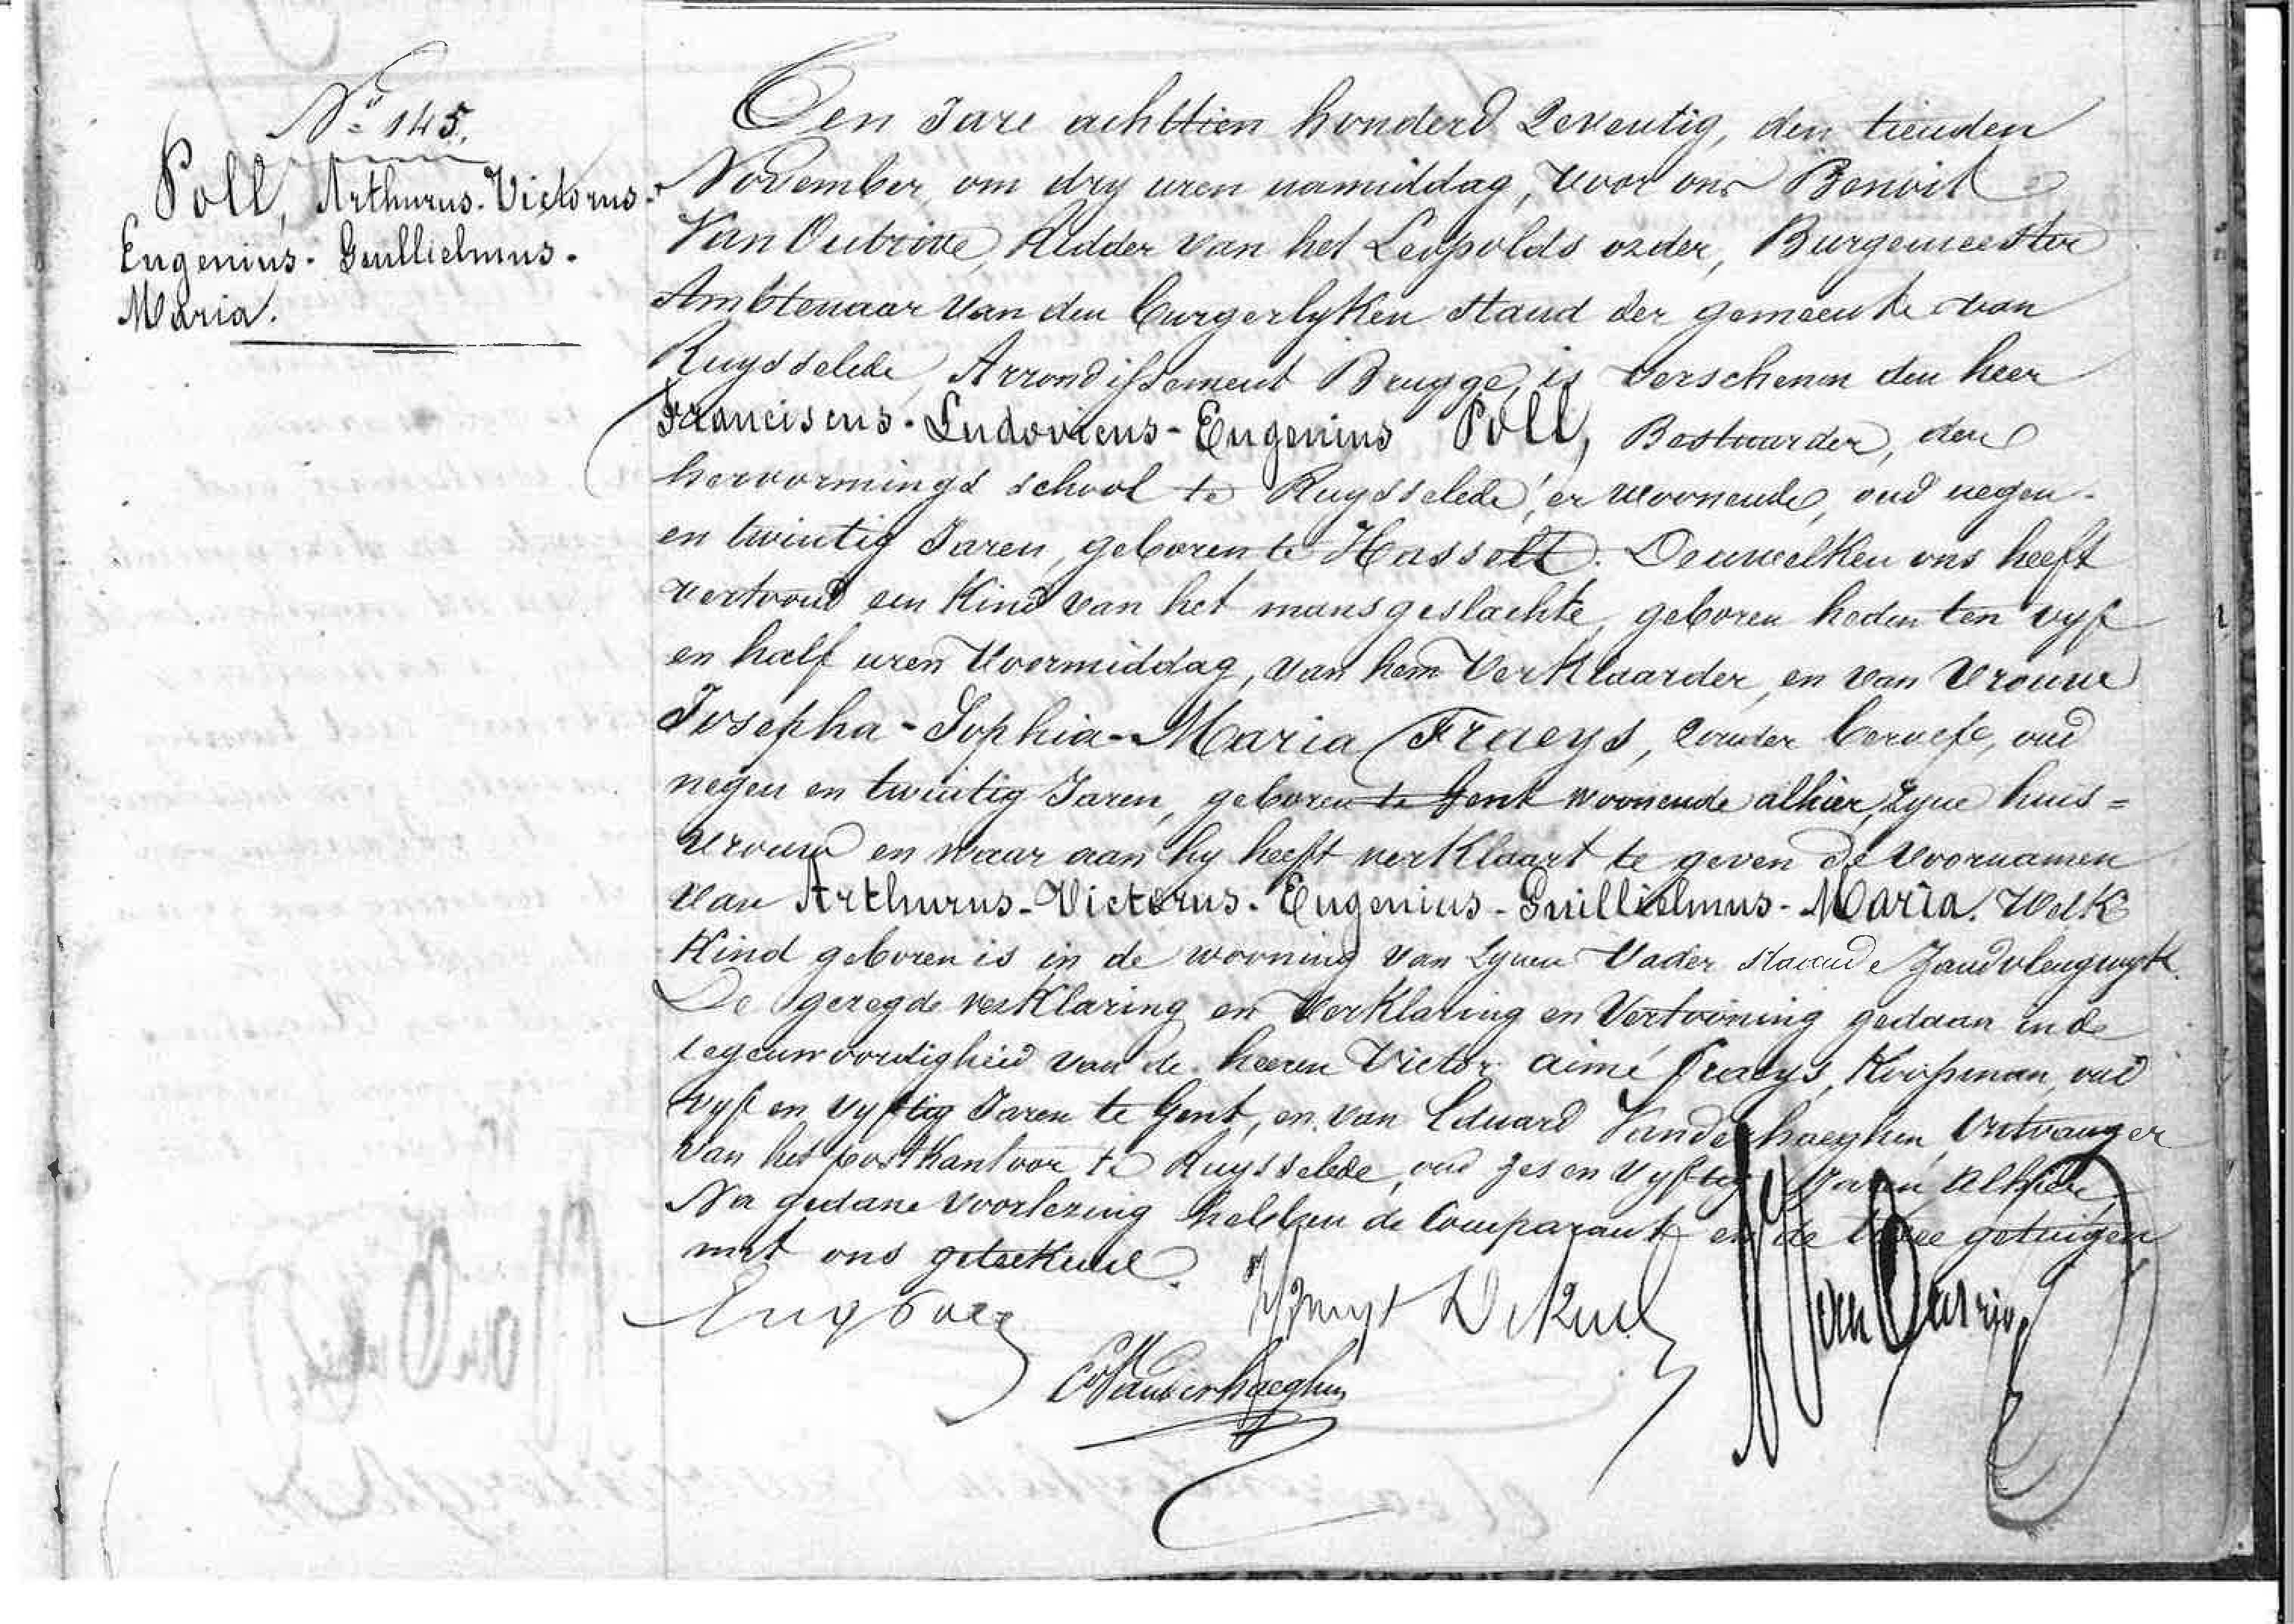 N° 145.
Poll, Arthurus-Victorus-
Eugenius-Guillielmus-
Maria.
Den Jare achttien honderd Zeventig, den tienden
November, om dry uren namiddag, voor ons Benoit
Van Outrive, Ridder van het Leopolds order, Burgemeester
Ambtenaar van den burgerlyken stand der gemeente van
Ruysselede, Arrondissement Brugge, is verschenen den heer
Franciscus-Ludovicus-Eugenius Poll, Bestuurder, der
hervormings school te Ruysselede, er woonende, oud negen-
en twintig Jaren, geboren te Hasselt. Denwelken ons heeft
vertoond een Kind van het mansgeslachte, geboren heden ten vyf
en half uren Voormiddag, van hem Verklaarder, en van Vrouwe
Josepha-Sophia-Maria Fraeys, zonder beroep, oud
negen en twintig Jaren, geboren te Gent woonende alhier, Zyne huis=
vrouw en waar aan hy heeft verklaart te geven de voornamen
van Arthurus-Victorus-Eugenius-Guillielmus-Maria. Welk
Kind geboren is in de wooning van Zynen Vader staande
De gezegde verklaring en Verklaring en Vertooning gedaan in de
tegenwoordigheid van de heeren Victor aimé Fraeys, Koopman, oud
vyf en vyftig Jaren te Gent, en van Eduard Vanderhaeghen, Ontvanger
van het postkantoor te Ruysselede, oud zes en vyftig Jaren alhier,
Na gedane voorlezing hebben de Comparant en de twee getuigen
met ons geteekend.
Eug Poll
EVanderhaeghen